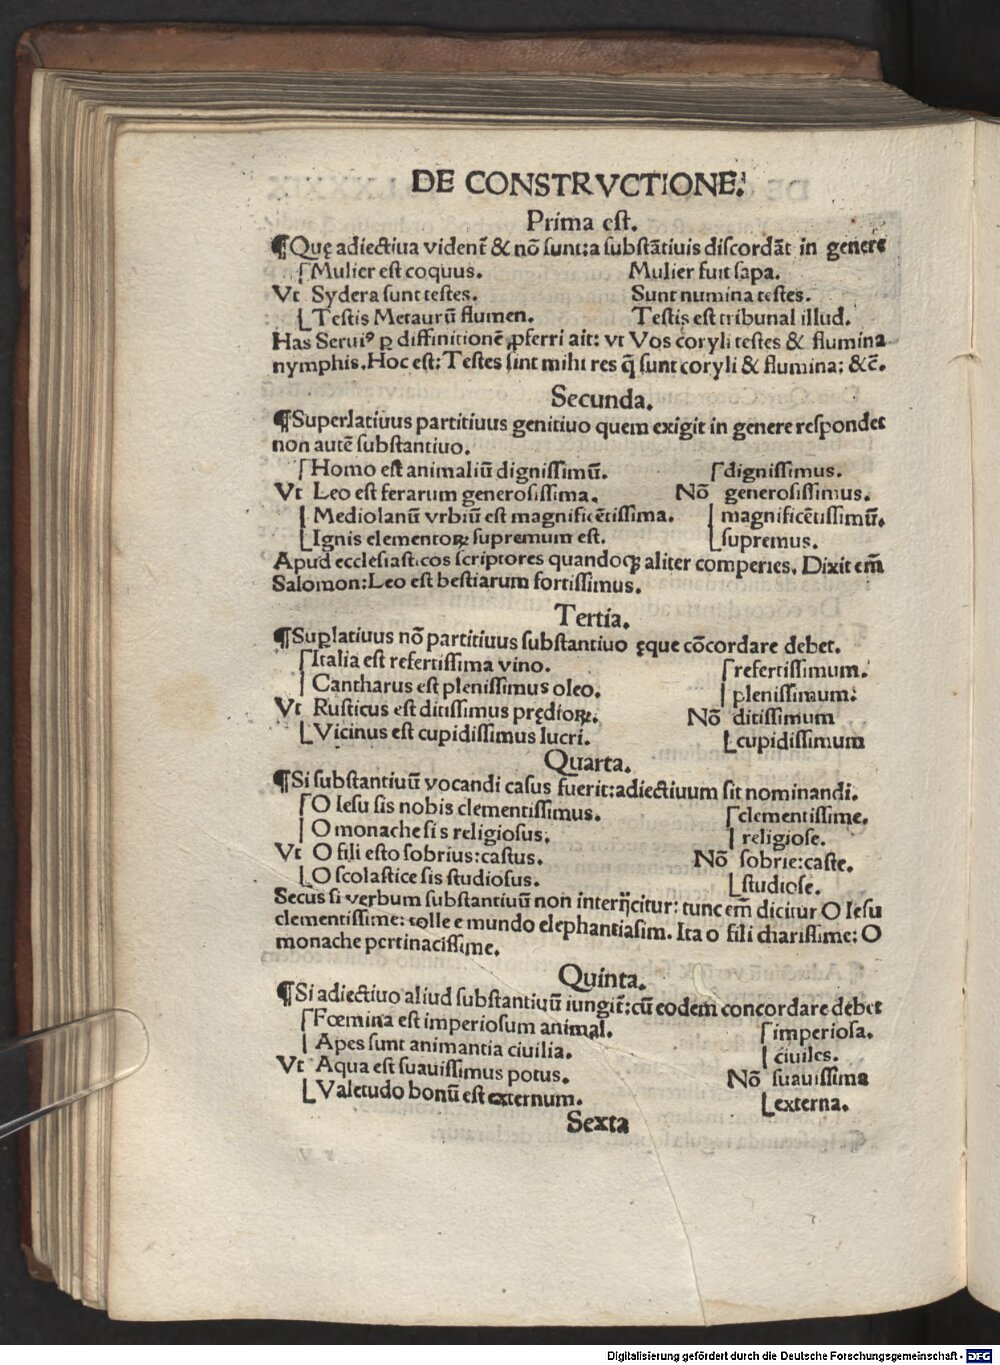 DE CONSTRVCTIONE.
Prima est.
¶Quę adiectiua videnť & nō sunt:a substātiuis discordāt in genere
⌈Mulier est coquus. Mulier fuit sapa.
Vt Sydera sunt testes. Sunt numina testes.
⌊Testis Metaurū flumen. Testis est tribunal illud.
Has Seruiꝰ ꝑ diffinitionē ꝓferri ait: vt Vos coryli testes & flumina
nymphis.Hoc est: Testes sint mihi res q̄ sunt coryli & flumina: &c̄.
Secunda.
¶Superlatiuus partitiuus genitiuo quem exigit in genere respondet
non autē substantiuo.
⌈Homo est animaliū dignissimū. ⌈dignissimus.
Vt Leo est ferarum generosissima. Nō generosissimus.
| Mediolanū vrbiū est magnificētissima. | magnificētissimū.
⌊Ignis elementoꝝ supremum est. ⌊supremus.
Apud ecclesiasticos scriptores quandoqꝫ aliter comperies. Dixit em̄
Salomon:Leo est bestiarum fortissimus.
Tertia.
¶Suꝑlatiuus nō partitiuus substantiuo ęque cōcordare debet.
⌈Italia est refertissima vino. ⌈refertissimum.
| Cantharus est plenissimus oleo. | plenissimum:
Vt Rusticus est ditissimus prędioꝝ. Nō ditissimum
⌊Vicinus est cupidissimus lucri. ⌊cupidissimum
Quarta.
¶Si substantiuū vocandi casus fuerit:adiectiuum sit nominandi.
⌈O Iesu sis nobis clementissimus. ⌈clementissime.
| O monache sis religiosus. | religiose.
Vt O fili esto sobrius:castus. Nō sobrie:caste.
⌊O scolastice sis studiosus. ⌊studiose.
Secus si verbum substantiuū non interijcitur: tunc em̄ dicitur O Iesu
clementissime: tolle e mundo elephantiasim. Ita o fili charissime: O
monache pertinacissime.
Quinta.
¶Si adiectiuo aliud substantiuū iungiť:cū eodem concordare debet
⌈Fœmina est imperiosum animal. ⌈imperiosa.
| Apes sunt animantia ciuilia. | ciuiles.
Vt Aqua est suauissimus potus. Nō suauissima
⌊Valetudo bonū est externum. ⌊externa.
Sexta
Digitalisierung gefördert durch die Deutsche Forschungsgemeinschaft - DFG